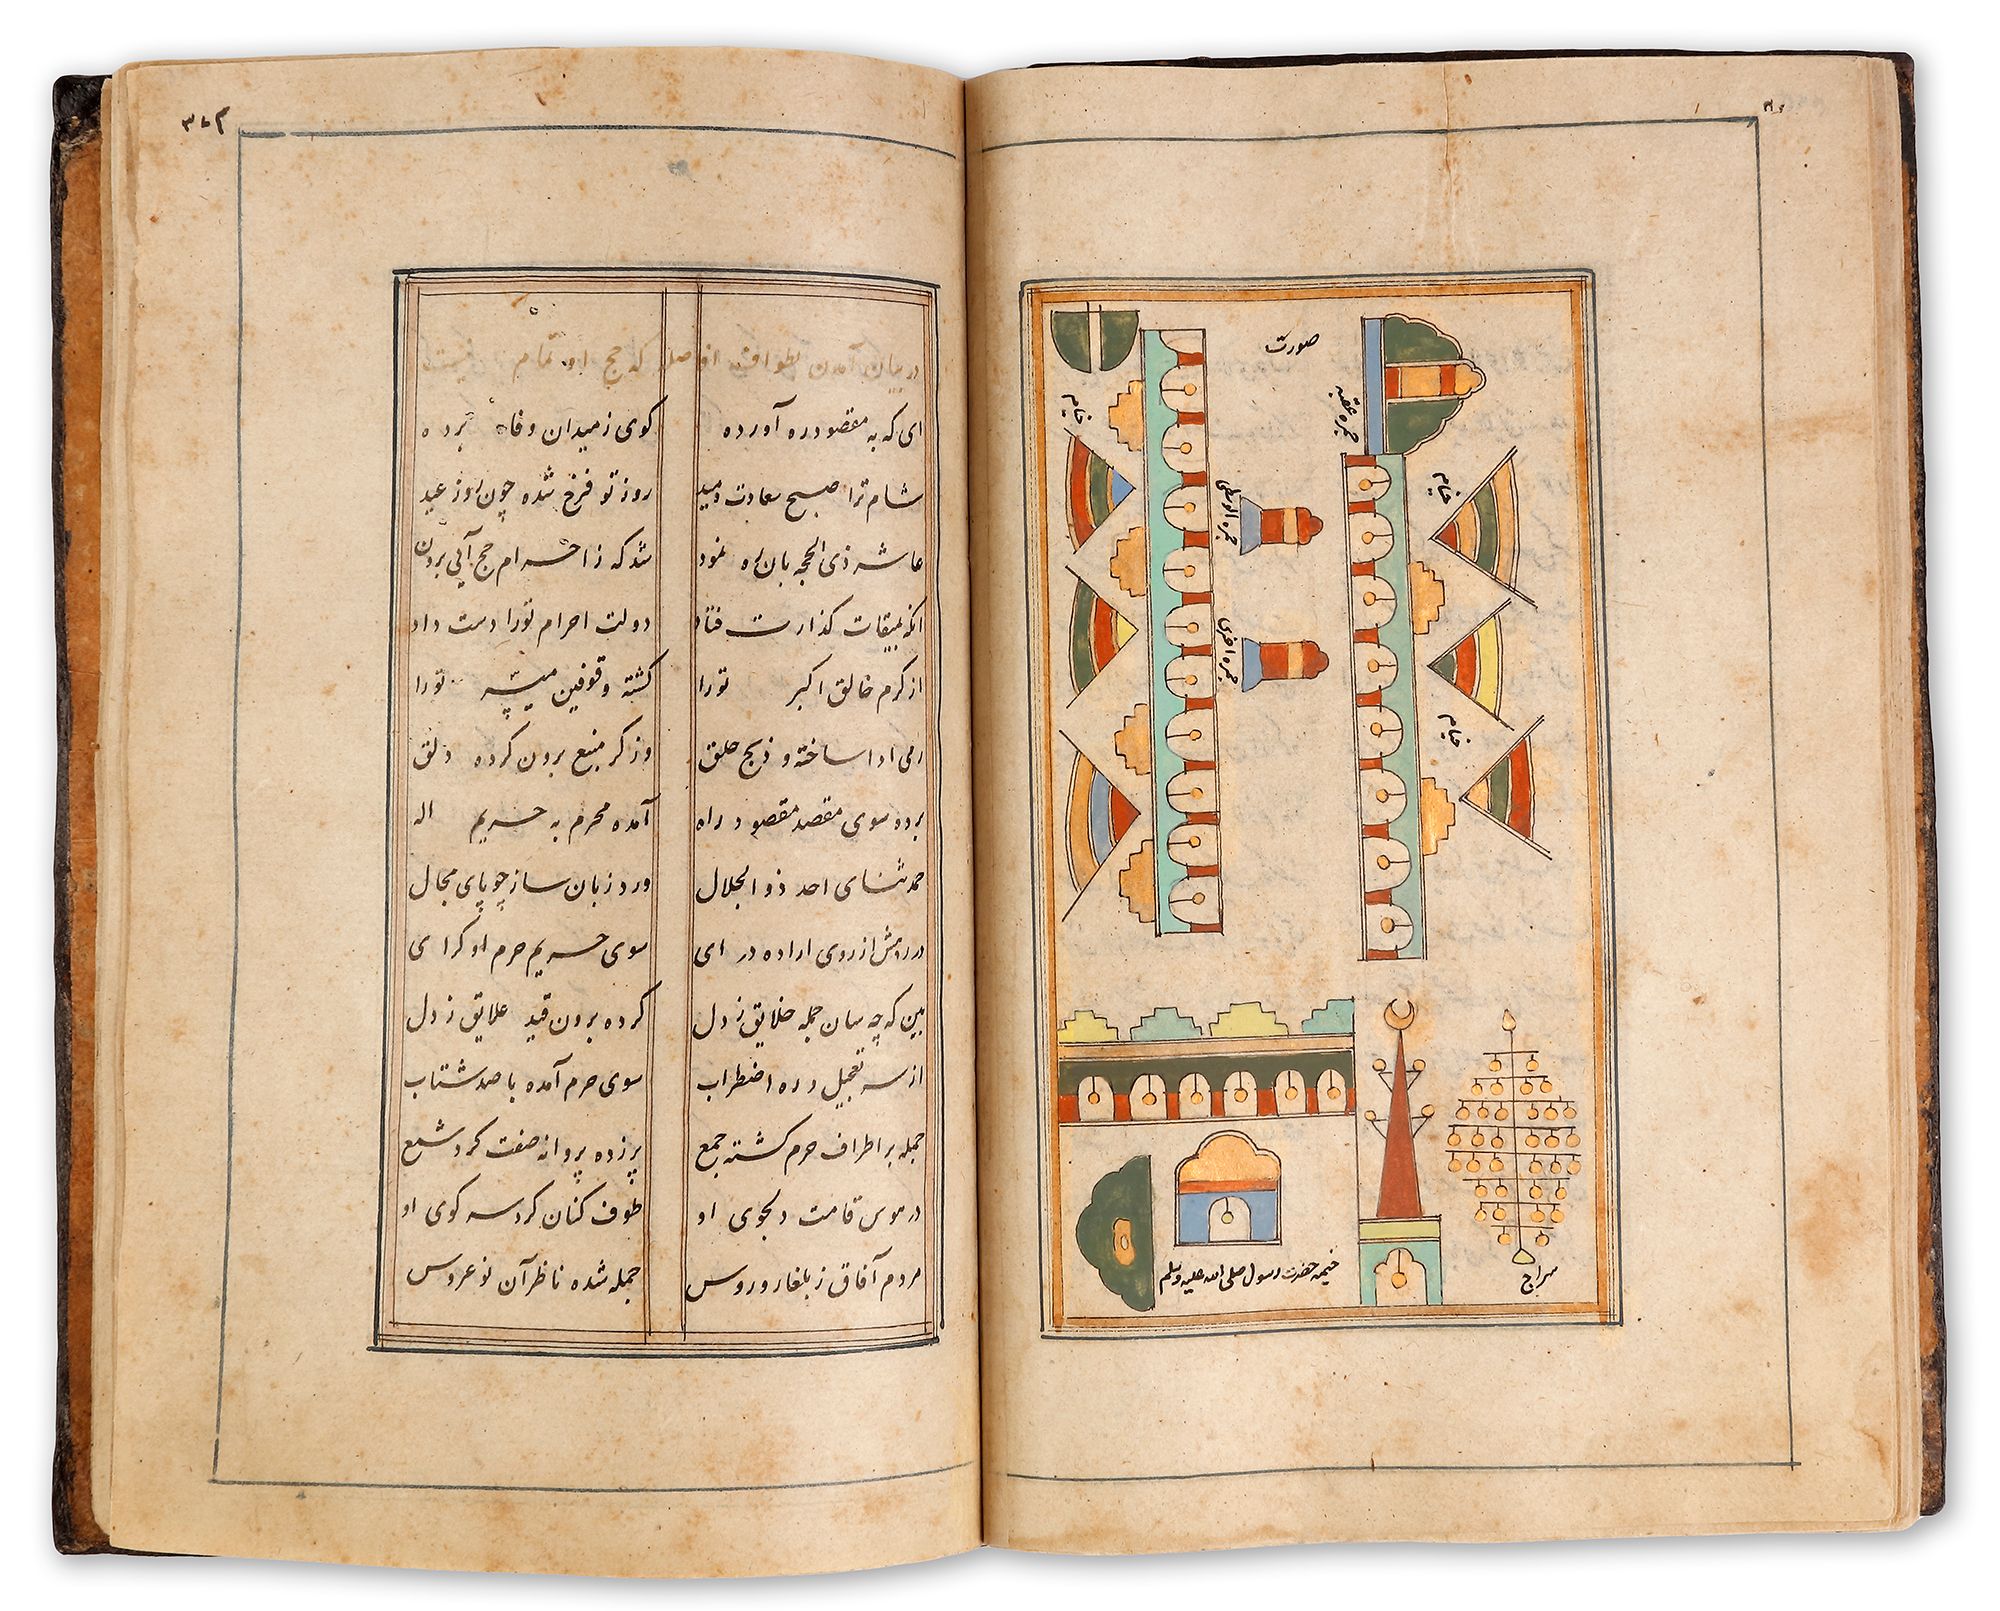 صورت
جمره عقبه
خیام
خیام
جمره الوسطی
خیام
جمره اخری
خیام
خیمه حضرت رسول صلی الله علیه وسلم
سراج
در بیان آمدن بطواف افاضه که حج او تمام نیست
ای که به مقصود ره آورده کوی ز میدان وفا برده
شام ترا صبح سعادت دمید روز تو فرخ شده چون روز عید
عاشر ذی الحجه بان ره نمود شد که ز احرام حج آیی برون
انکه بمیقات گذارت فتاد دولت احرام تو را دست داد
از کرم خالق اکبر تو را کشته وقوفین میسر تو را
رمی ادا ساخته و ذبح حلق وز کر منبع برون کرده دلق
برده سوی مقصد مقصود راه آمده محرم به حریم اله
حمد ثنای احد ذو الجلال ورد زبان ساز چو یای مجال
در روش از روی اراده در ای سوی حریم حرم او کرای
بین که چه سان جمله خلایق ز دل کرده برون قید علایق ز دل
از سر تعجیل و ره اضطراب سوی حرم آمده با صد شتاب
جمله بر اطراف حرم کشته جمع پر زده پروانه صفت کرد شمع
در هوس قامت دلجوی او طوف کنان کرد سر کوی او
مردم آفاق ز بلغار و روس جمله شده ناظر آن نوعروس